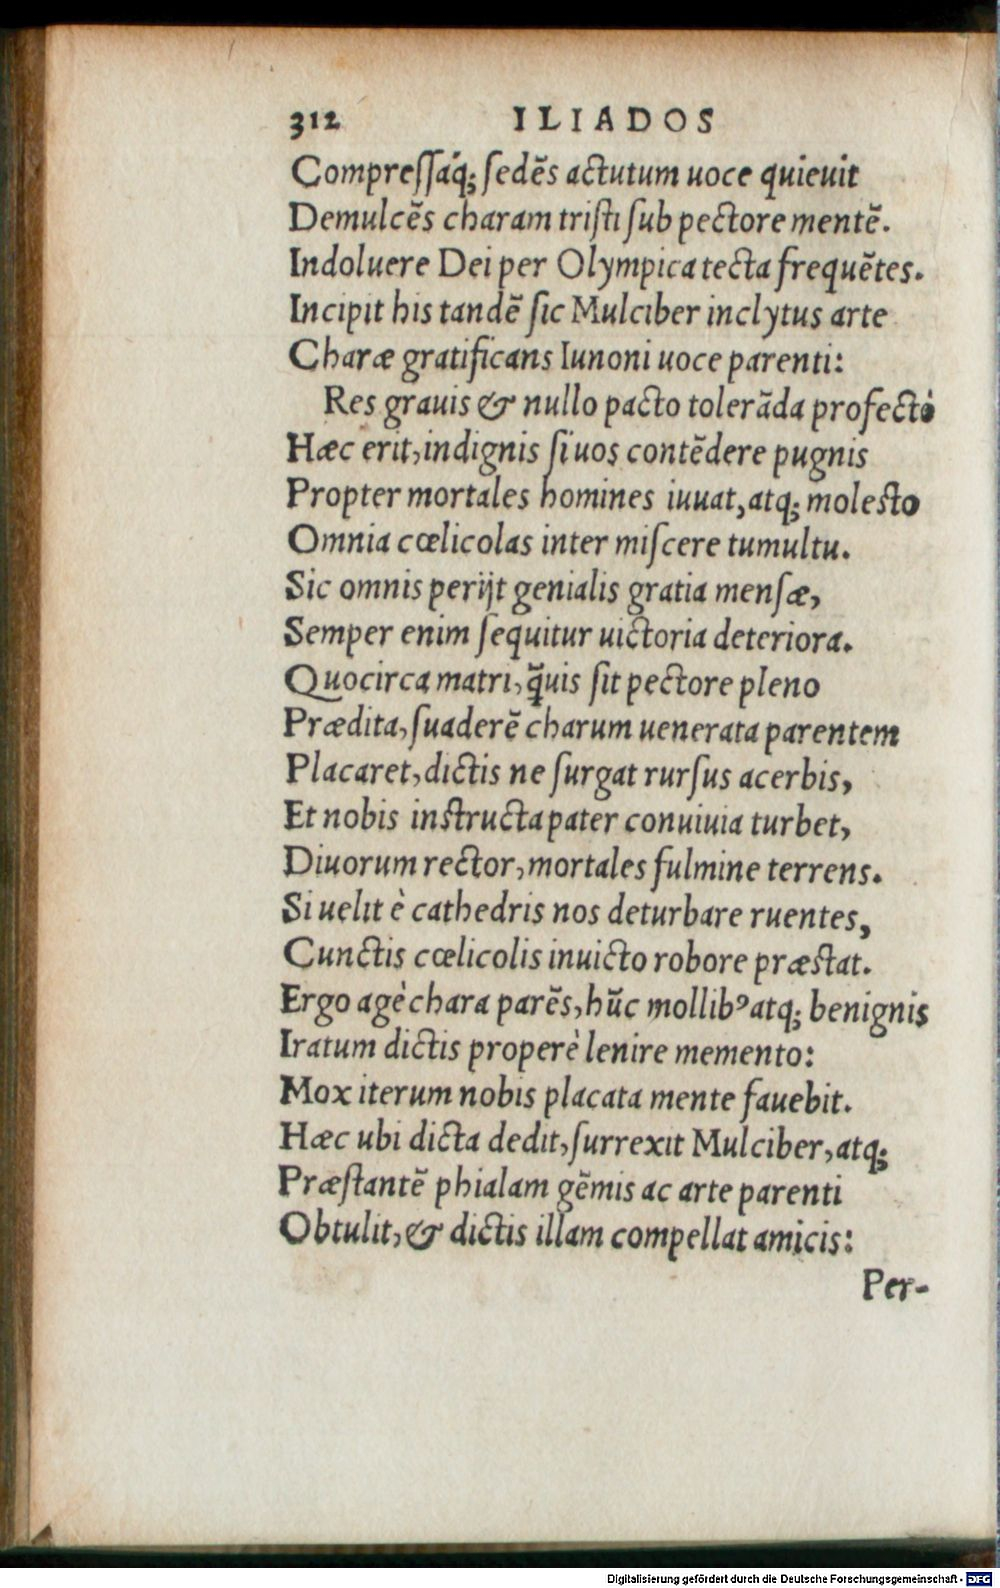 312 ILIADOS
Compreſſáq; ſedẽs actutum uoce quieuit
Demulcẽs charam triſti ſub pectore mentẽ.
Indoluere Dei per Olympica tecta frequẽtes.
Incipit his tandẽ ſic Mulciber inclytus arte
Charæ gratificans Iunoni uoce parenti:
Res grauis & nullo pacto tolerãda profectò
Hæc erit, indignis ſi uos contẽdere pugnis
Propter mortales homines iuuat, atq; moleſto
Omnia cœlicolas inter miſcere tumultu.
Sic omnis perijt genialis gratia menſæ,
Semper enim ſequitur uictoria deteriora.
Quocirca matri, q̃uis ſit pectore pleno
Prædita, ſuaderẽ charum uenerata parentem
Placaret, dictis ne ſurgat rurſus acerbis,
Et nobis inſtructa pater conuiuia turbet,
Diuorum rector, mortales fulmine terrens.
Si uelit è cathedris nos deturbare ruentes,
Cunctis cœlicolis inuicto robore præſtat.
Ergo agè chara parẽs, hũc mollibꝰ atq; benignis
Iratum dictis properè lenire memento:
Mox iterum nobis placata mente fauebit.
Hæc ubi dicta dedit, ſurrexit Mulciber, atq;
Præſtantẽ phialam gẽmis ac arte parenti
Obtulit, & dictis illam compellat amicis:
Per-
Digitalisierung gefördert durch die Deutsche Forschungsgemeinschaft - DFG